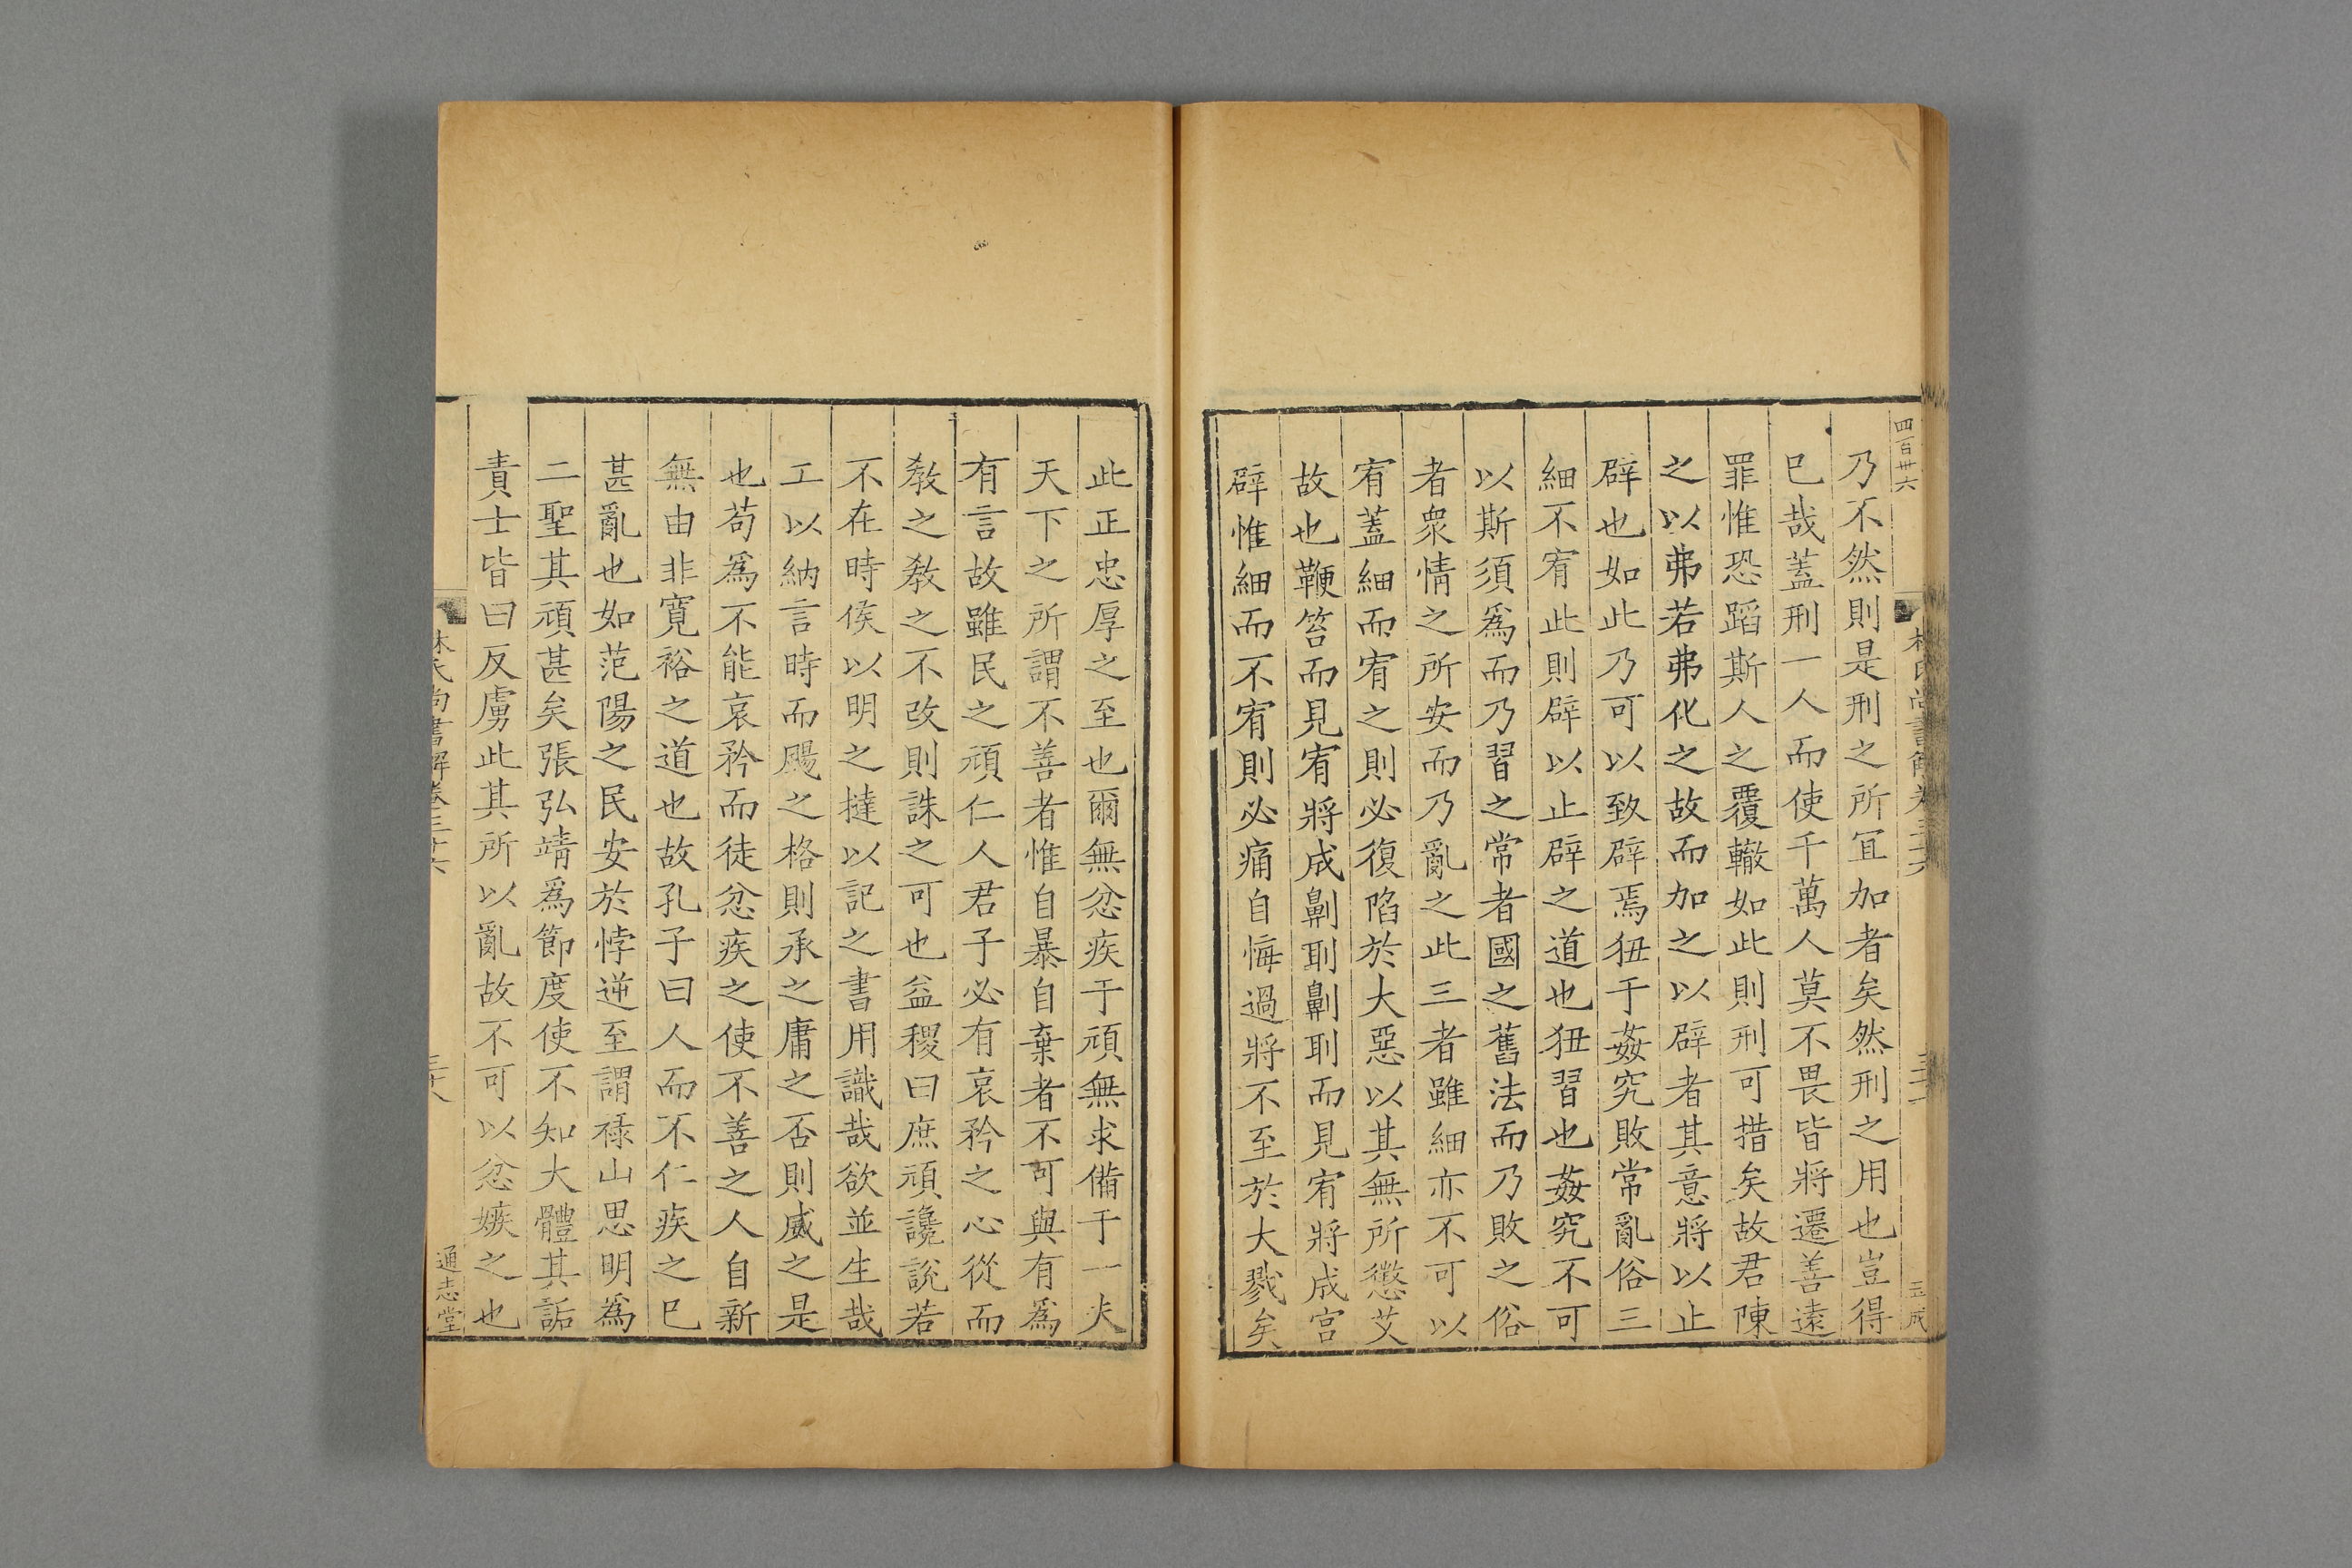 四百卅六
乃不然則是刑之所宜加者矣然刑之用也豈得
已哉蓋刑一人而使千萬人莫不畏皆將遷善遠
罪惟恐蹈斯人之覆轍如此則刑可措矣故君陳
之以弗若弗化之故而加之以辟者其意將以止
辟也如此乃可以致辟焉狃于姦宄敗常亂俗三
細不宥此則辟以止辟之道也狃習也姦宄不可
以斯須爲而乃習之常者國之舊法而乃敗之俗
者衆情之所安而乃亂之此三者雖細亦不可以
宥蓋細而宥之則必復陷於大惡以其無所懲艾
故也鞭笞而見宥將成劓刵劓刵而見宥將成宫
辟惟細而不宥則必痛自悔過將不至於大戮矣
此正忠厚之至也爾無忿疾于頑無求備于一夫
天下之所謂不善者惟自暴自棄者不可與有爲
有言故雖民之頑仁人君子必有哀矜之心從而
敎之敎之不改則誅之可也益稷曰庶頑讒說若
不在時侯以明之撻以記之書用識哉欲並生哉
工以納言時而颺之格則承之庸之否則威之是
也苟爲不能哀矜而徒忿疾之使不善之人自新
無由非寬裕之道也故孔子曰人而不仁疾之已
甚亂也如范陽之民安於悖逆至謂祿山思明爲
二聖其頑甚矣張弘靖爲節度使不知大體其詬
責士皆曰反虜此其所以亂故不可以忿嫉之也
林氏尚書解卷三十六
通志堂